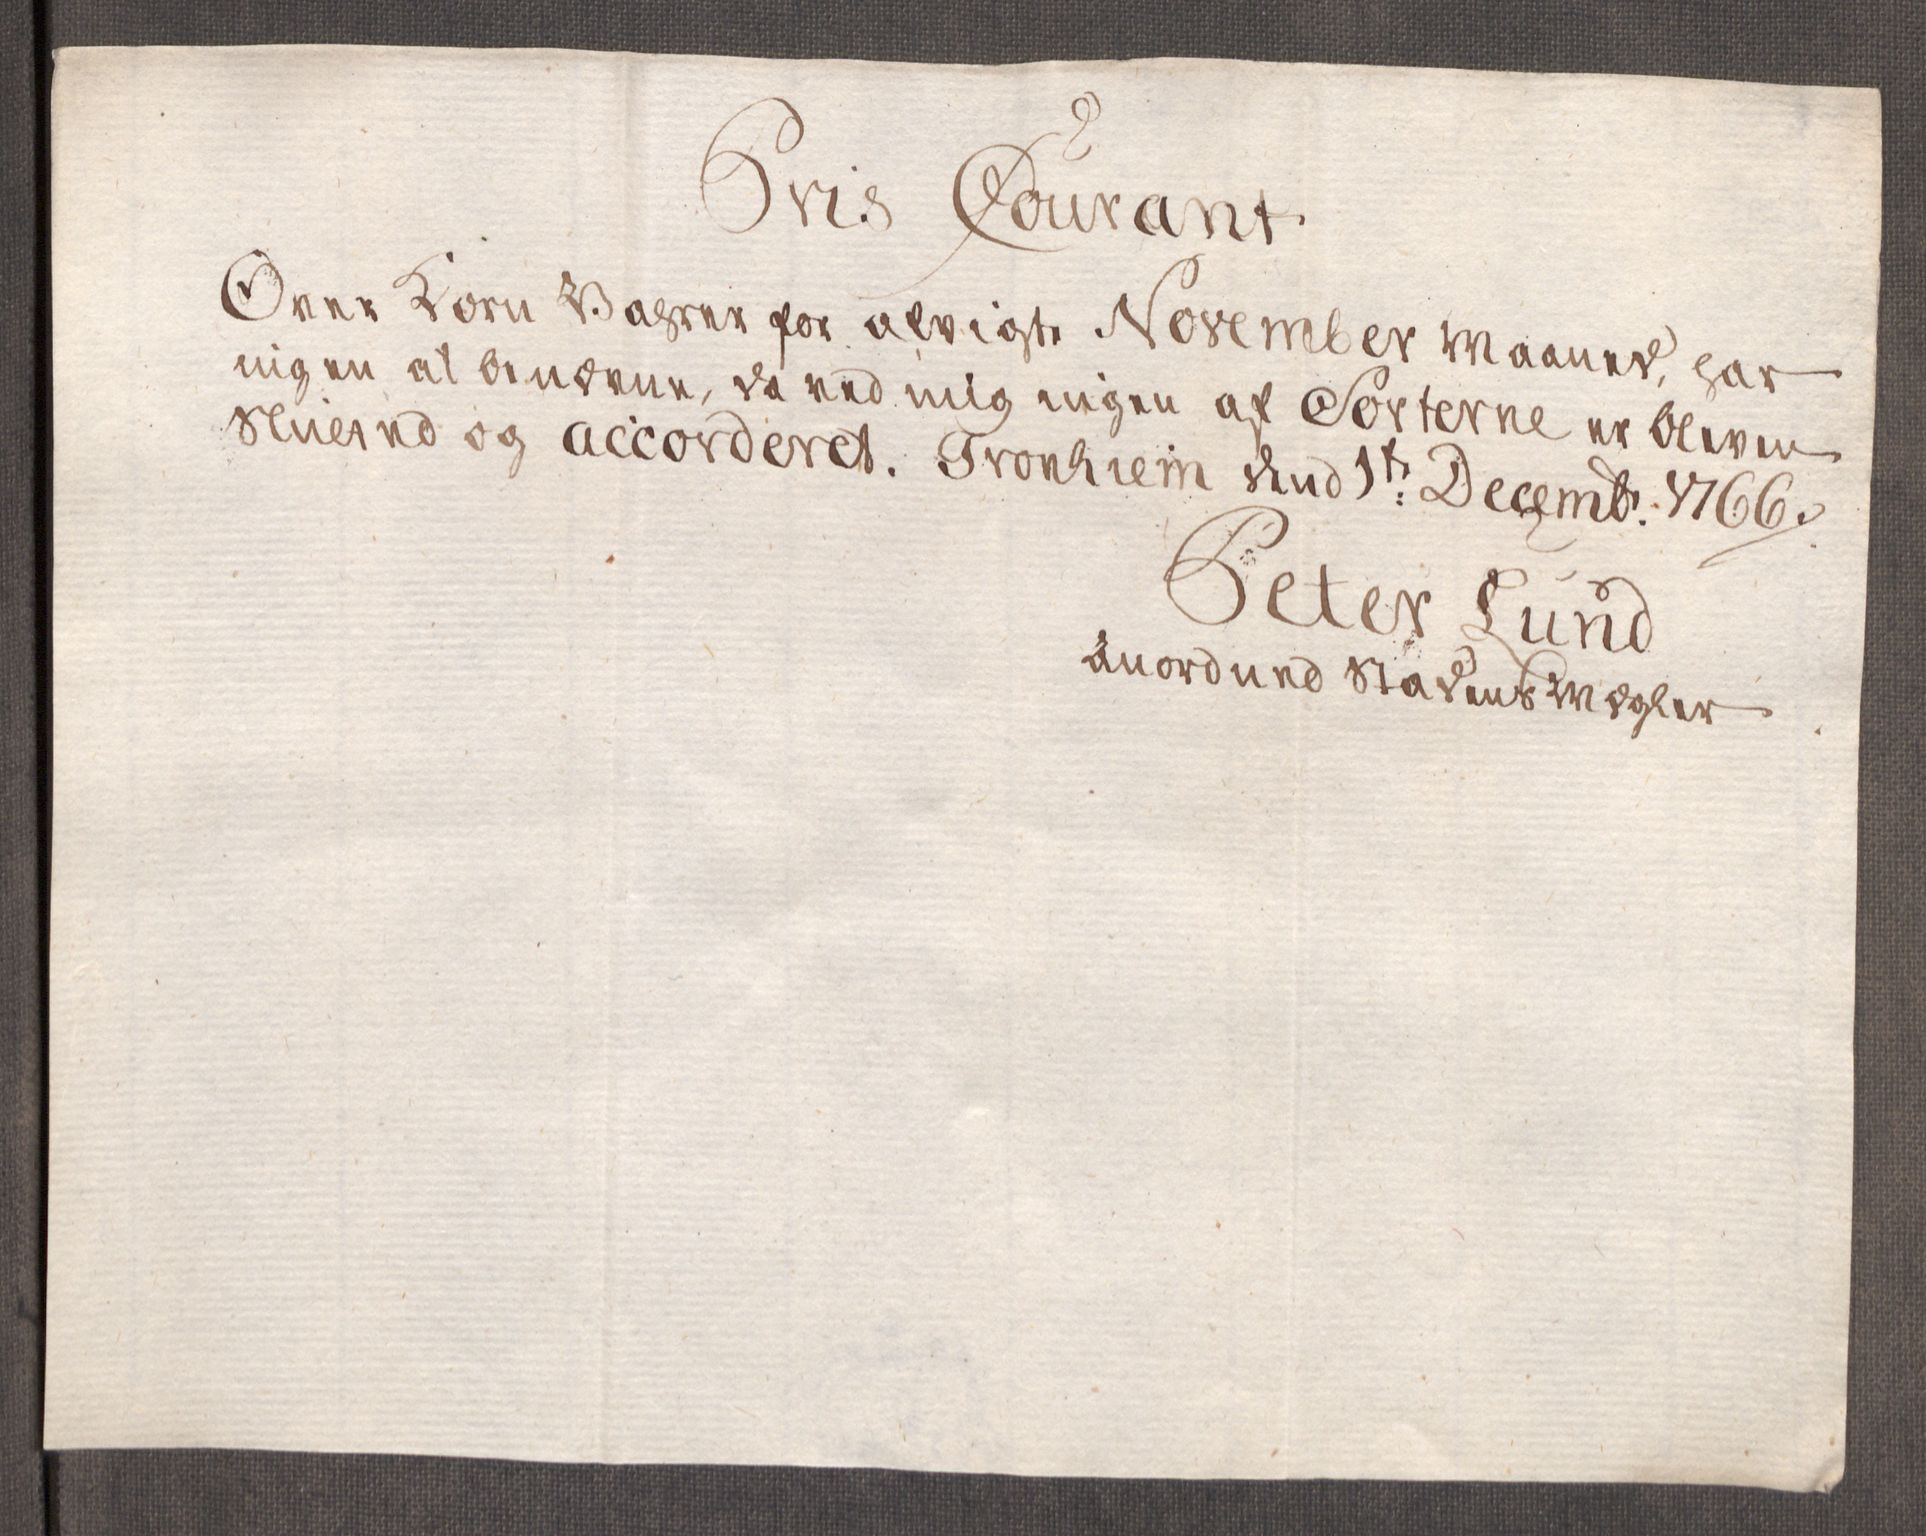 Pris Courant
Over Korn Vahrer for afvigte November Maaned, har
ingen at benævne, da ved mig ingen af Sorterne er bleven
Slutted og accorderet. Tronhiem dend 1te: Decembr. 1766.
Peter Lund
Anordned Stadens Mægler